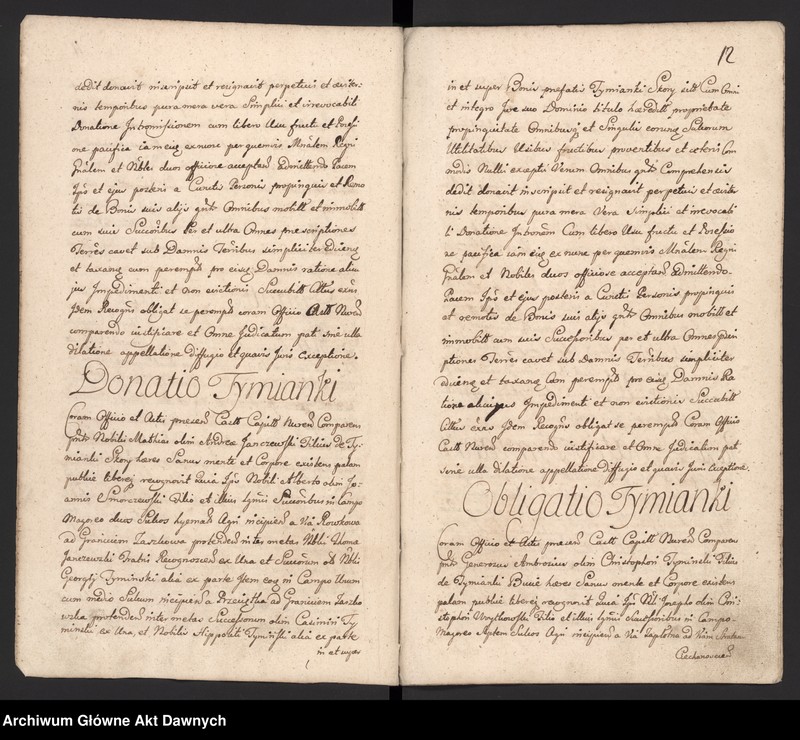 dedit donavit inscripsit et resignavit perpetuis et æviter
nis temporibus pura mera vera Simplici et irrevocabili
Donatione Intromissionem cum libero Usu fructu et Posessi
one pacifica iam ex nunc per quemvis Mnrlem Regni
Gnalem et Nbles duos officiose acceptan Admittendo Pacem
Ipsi et ejus posteris a Cunctis Personis propinquis et Remo
tis de Bonis suis alijs Omnibus mobilib et immobilib
cum suis Succoribus Per et ultra Omnes prescriptiones
Terres cavet sub Damnis Terribus simpliciter edicens
et taxans cum peremptt pro eius Damnis ratione alicu
jus Impedimenti et non evictionis Succubitt Citus exns
Idem Recogns obligat se peremptt coram Officio Castt Nuren
comparendo iustificare et Omne Judicatum pat sine ulla
dilatione appellatione diffugio et quavis Juris exceptione.
Donatio Tymianki
Coram Officio et Actis presen Castt Capitt Nuren Comparens
Nobilis Mathias olim Andreæ Janczewski Filius de Ty
mianki Skory hæres Sanus mente et Corpore existens palam
publice libereq recognovit Quia Ipse Nobili Alberto olim Jo
annis Smorczewski Filio et illius Succoribus in Campo
Majores duos Sulcos Agri incipien a Via
ad Graniciem Zaszkowa protenden inter metas Nblis Thomæ
Janczewski Fratris Recognoscen ex Una et Succorum olim Nblis
Georgij Tyminski alia ex parte Item eog in Campo Unum
cum medio Sulcum incipien a ad Graniciem Zaszko
wska protenden inter metas Successorum olim Casimiri Ty
minski ex Una, et Nobilis Hippoliti Tyminski alia ex parte
in et super
12
in et super Bonis prefatis Tymianki Skory sitt Cum Omni
et integro Jure suo Dominio titulo hæreditt proprietate
propinquitate Omnibusq et Singulis eorunq Sulcorum
Utilitatibus Usibus fructibus proventibus et ceteris Com
modis Nullis exceptis Verum Omnibus Comprehensis
dedit donavit inscripsit et resignavit perpetuis et æviter
nis temporibus pura mera Vera Simplici et irrevocabi
li Donatione Intromissionem Cum libero Usu fructu et Possessio
ne pacifica iam ex nunc per quemvis Mnrlem Regni
Gnalem et Nobiles duos officiose acceptan Admittendo.
Pacem Ipsi et ejus posteris a Cunctis Personis propinquis
et remotis de Bonis suis alijs Omnibus mobilitt et
immobilitt cum suis Successoribus per et ultra Omnes prescri
ptiones Terres cavet sub Damnis Terribus simpliciter
edicens et taxans Cum peremptt pro eius Damnis Ra
tione alicujus Impedimenti et non evictionis Succubitt
Citus exns Idem Recogns obligat se peremptt Coram Officio
Castt Nuren comparendo iustificare et Omne Judicatum pat
sine ulla dilatione appellatione diffugio et quavis Juris exceptione.
Obligatio Tymianki
Coram Officio et Actis presen Castt Capitt Nuren Comparens
Generosus Ambrosius olim Christophori Tyminski Filius
de Tymianki Bucie hæres Sanus mente et Corpore existens
palam publice libereq recognovit Quia Ipse Nbli Josepho olim Chri
stophori Wnychowski Filio et illius Successoribus in Campo
Majores Septem Sulcos Agri incipien a Via ad Viam
Ciechanoviecen
Archiwum Główne Akt Dawnych